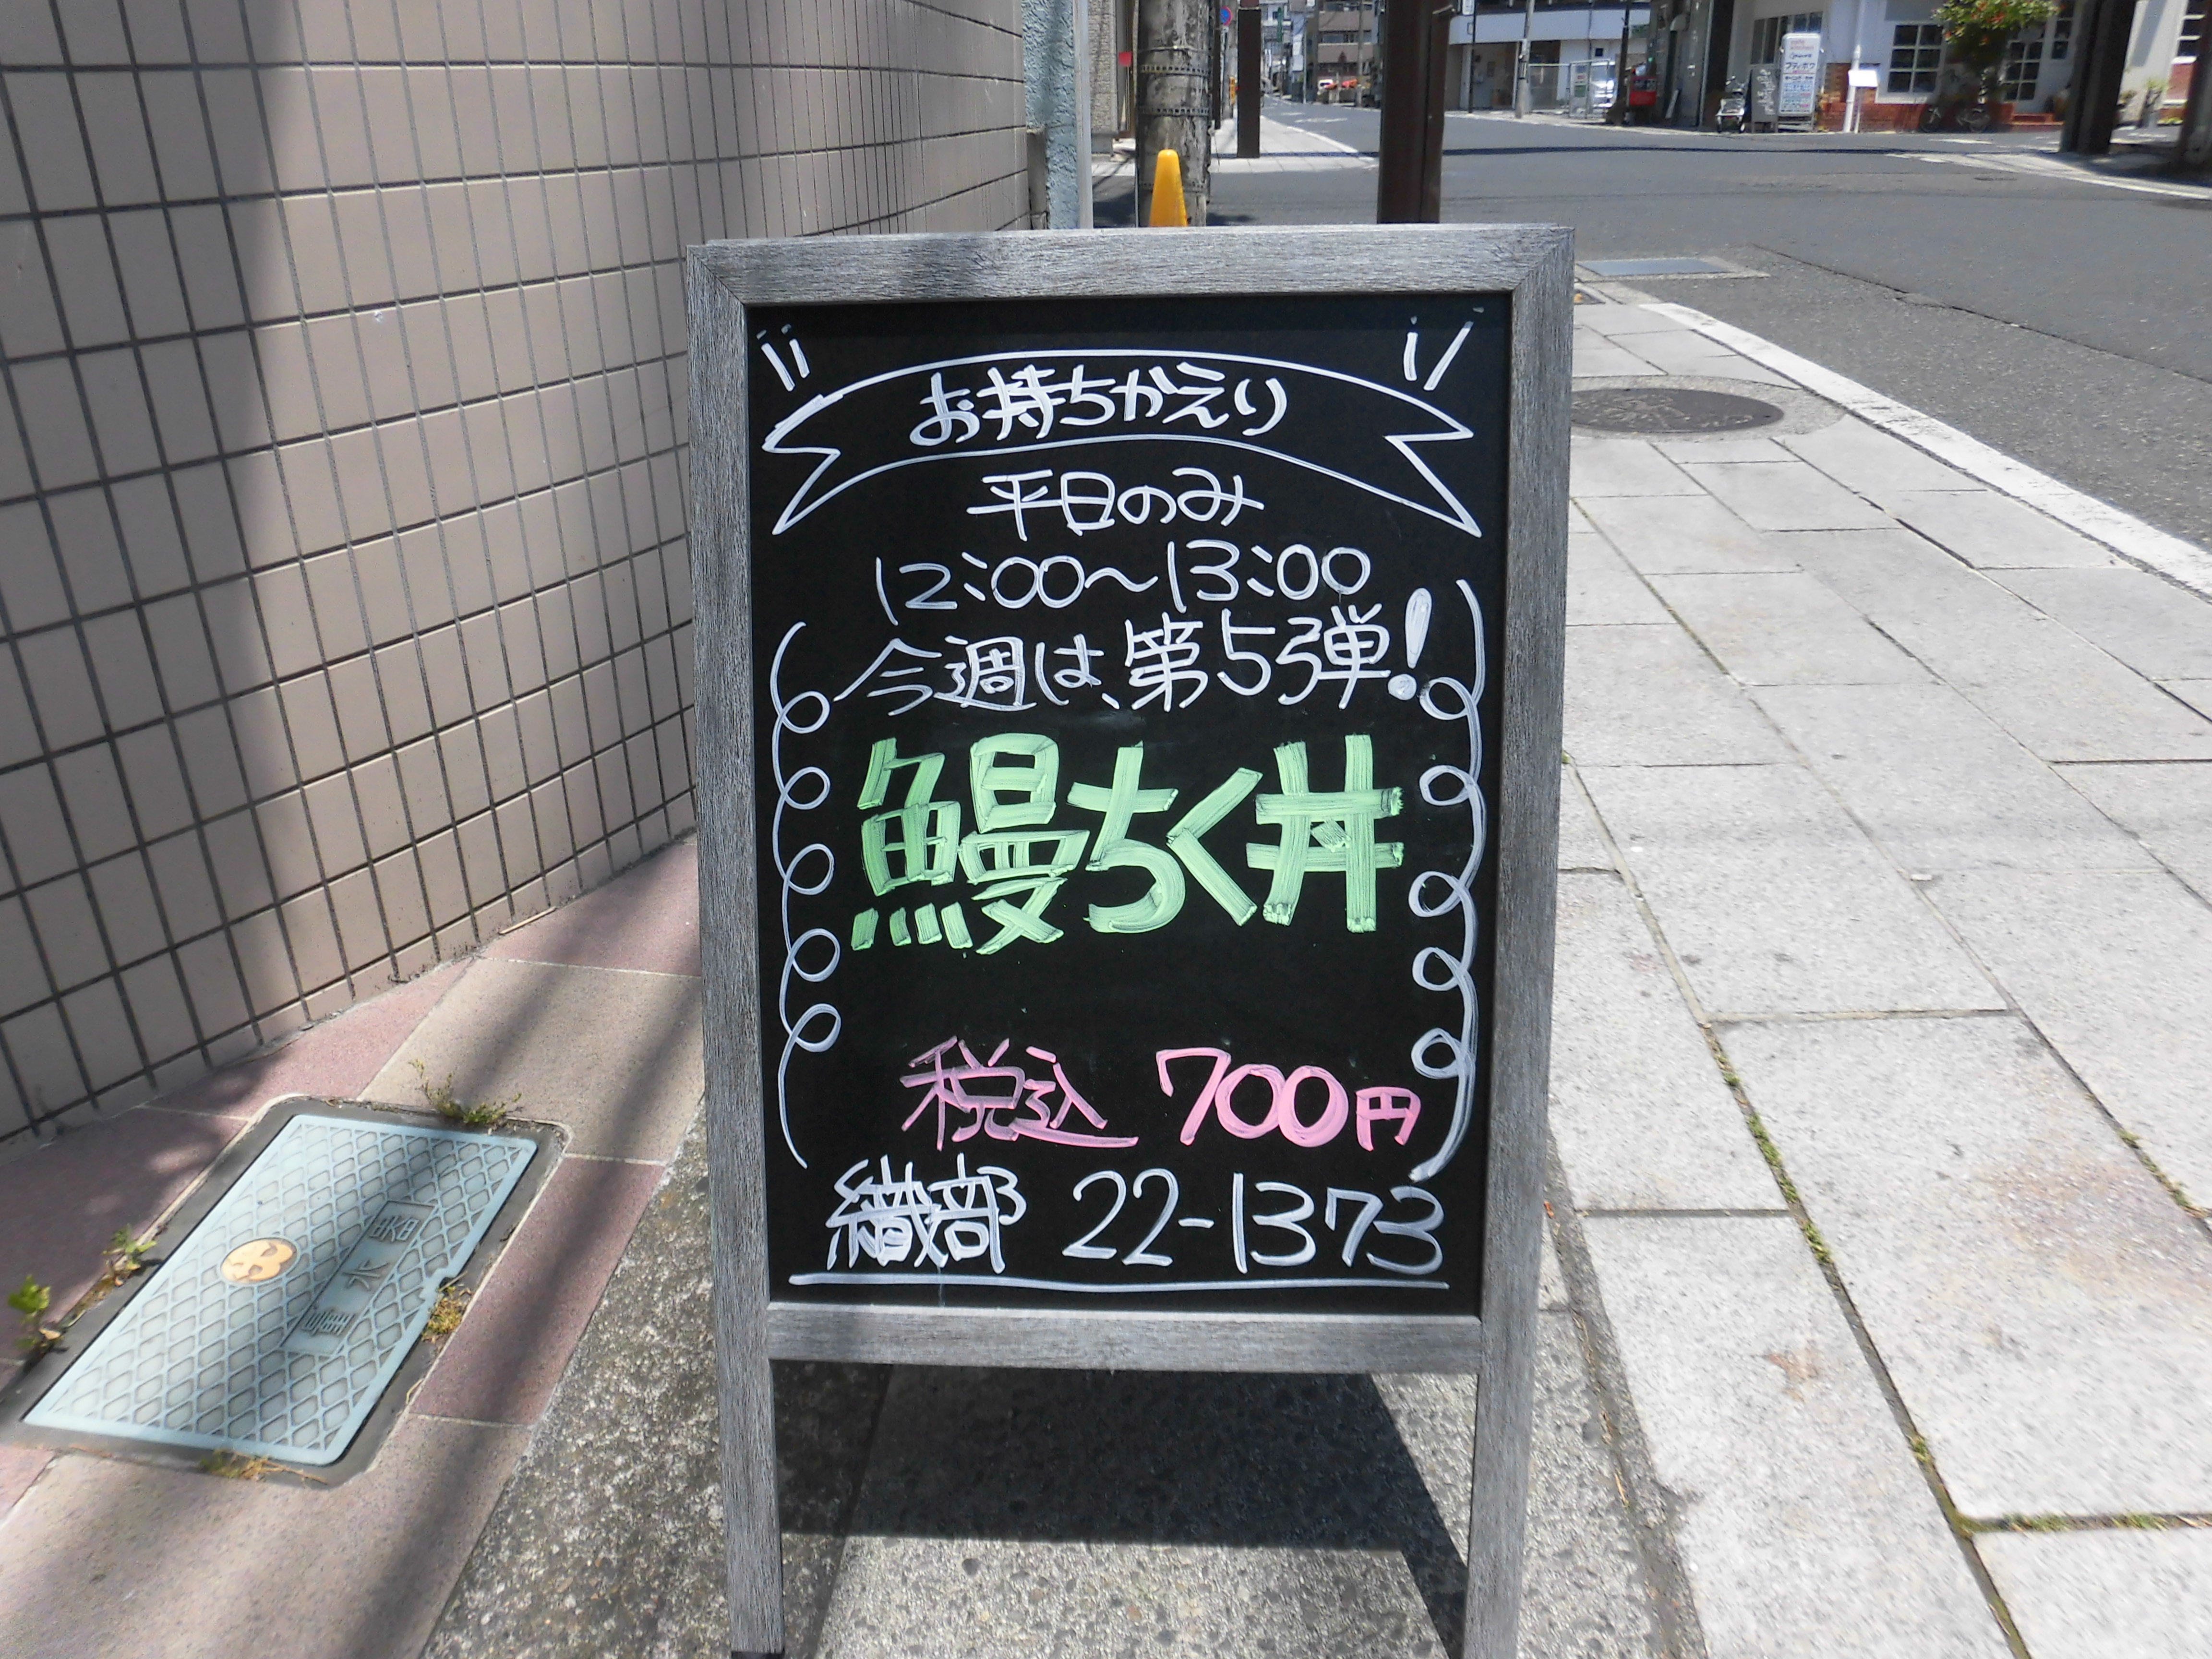 お持ちかえり
平日のみ
12:00〜13:00
今週は、第5弾!
鰻ちく丼
税込 700円
織部 22-1373